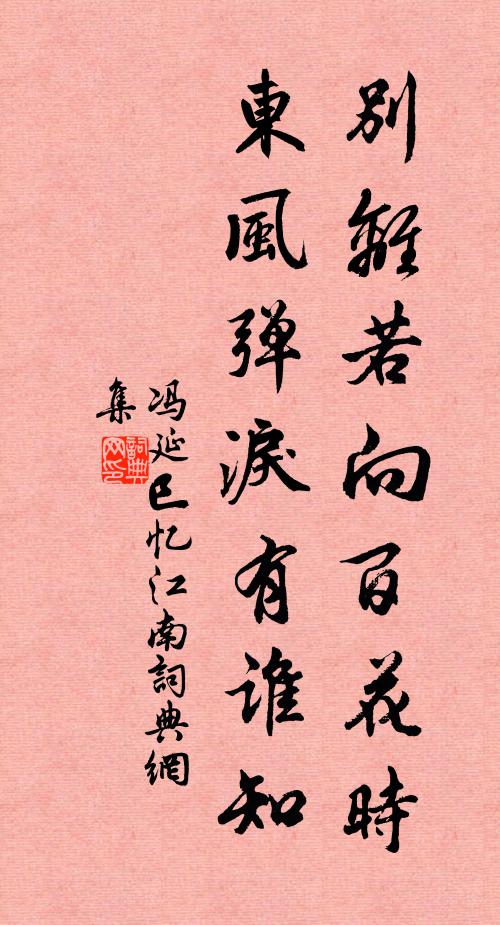 別離若向百花時
東風弹淚有谁知
冯延巳忆江南詞典網
集
詞典
网印